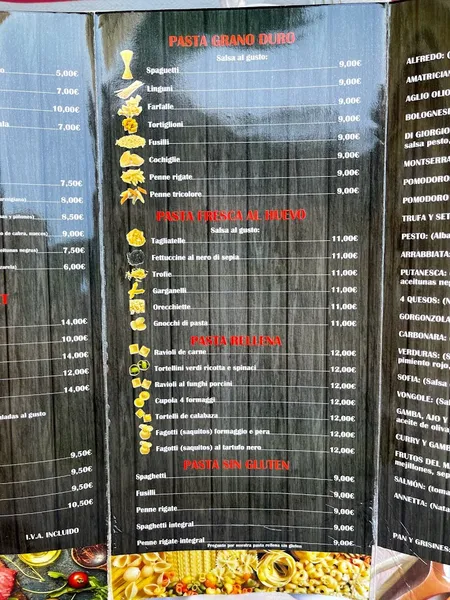 5,00€
7,00€
10,00€
7,00€
7,50€
8,50€
9,50€
9,50€
7,50€
6,00€
14,00€
10,00€
14,00€
12,00€
14,00€
al gusto
9,50€
9,50€
9,50€
10,50€
I.V.A. INCLUIDO
PASTA GRANO DURO
Salsa al gusto:
Spaguetti 9,00€
Linguni 9,00€
Farfalle 9,00€
Tortiglioni 9,00€
Fusilli 9,00€
Cochiglie 9,00€
Penne rigate 9,00€
Penne tricolore 9,00€
PASTA FRESCA AL HUEVO
Salsa al gusto:
Tagliatelle 11,00€
Fettuccine al nero di sepia 11,00€
Trofie 11,00€
Garganelli 11,00€
Orecchiette 11,00€
Gnocchi di pasta 11,00€
PASTA RELLENA
Ravioli de carne 12,00€
Tortellini verdi ricotta e spinaci 12,00€
Ravioli al funghi porcini 12,00€
Cupola 4 formaggi 12,00€
Tortelli de calabaza 12,00€
Fagotti (saquitos) formaggio e pera 12,00€
Fagotti (saquitos) al tartufo nero 12,00€
PASTA SIN GLUTEN
Spaghetti 9,00€
Fusilli 9,00€
Penne rigate 9,00€
Spaghetti integral 9,00€
Penne rigate integral 9,00€
Pregunte por nuestra pasta rellena sin gluten
ALFREDO: (
AMATRICIAN
AGLIO OLIO
BOLOGNES
DI GIORGIO
salsa pesto,
MONTSERRA
POMODORO
POMODORO
TRUFA Y SET
PESTO: (Alba
ARRABBIATA:
PUTANESCA:
aceitunas neg
4 QUESOS: (N
GORGONZOLA
CARBONARA:
VERDURAS: (S
pimiento rojo,
SOFIA: (Salsa
VONGOLE: (Sal
GAMBA, AJO Y
aceite de oliva
CURRY Y GAMB
FRUTOS DEL MA
mejillones, sep
SALMÓN: (toma
ANNETTA: (Nata
PAN Y GRISINES: